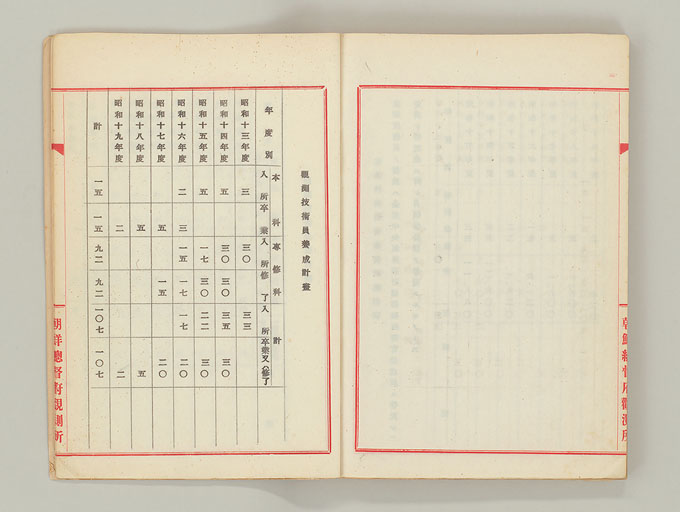 朝鮮總督府觀測所
觀測技術員養成計畫
本科 專修科 計
年度別 入所 卒業 入所 修了 入所 卒業又ハ修了
昭和十三年度 三 三〇 三三
昭和十四年度 五 三〇 三〇 三五 三〇
昭和十五年度 五 一七 三〇 二二 三〇
昭和十六年度 二 三 一五 一七 一七 二〇
昭和十七年度 五 一五 二〇
昭和十八年度 五 五
昭和十九年度 二 二
計 一五 一五 九二 九二 一〇七 一〇七
朝鮮總督府觀測所